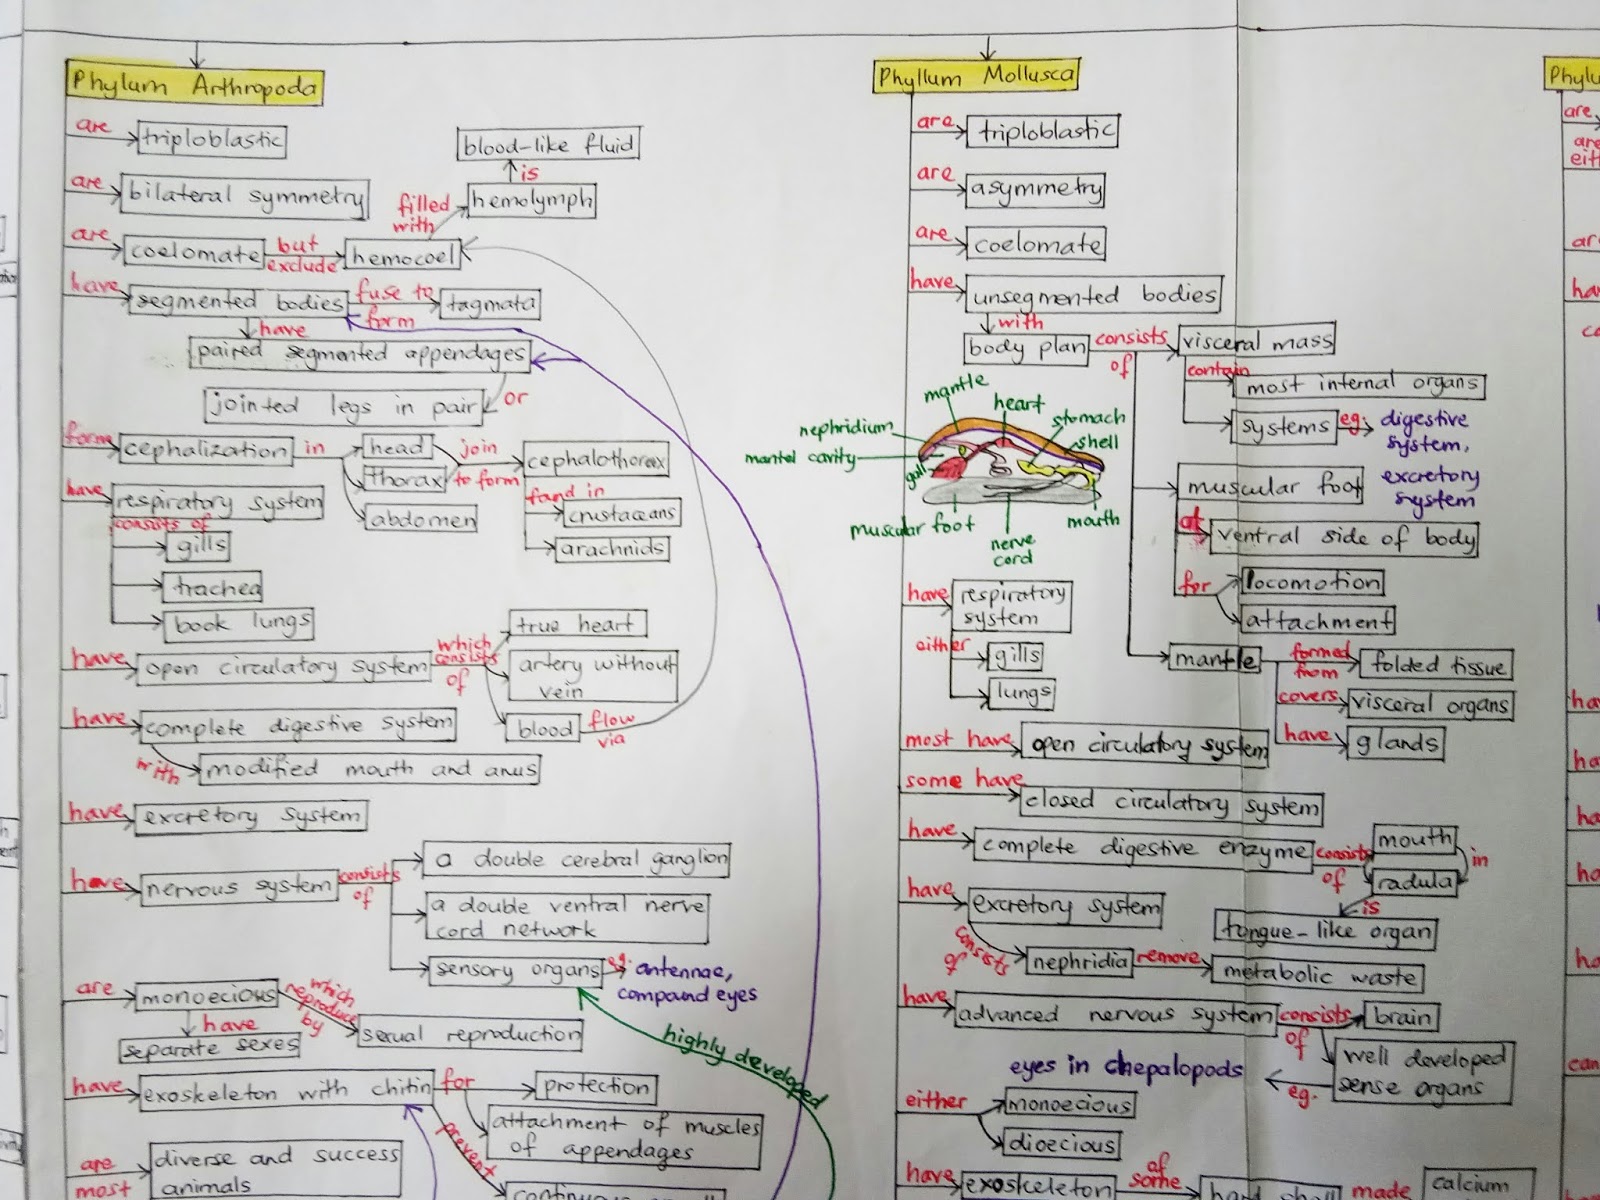 Phylum Arthropoda
are triploblastic
are bilateral symmetry
are coelomate but exclude hemocoel
filled with hemolymph
is
blood-like fluid
have segmented bodies fuse to form tagmata
have
paired segmented appendages
or
jointed legs in pair
form cephalization in head
thorax
abdomen
join to form cephalothorax
found in
crustaceans
arachnids
have respiratory system
consists of
gills
trachea
book lungs
have open circulatory system which consists of
true heart
artery without vein
blood flow via
have complete digestive system
with modified mouth and anus
have excretory system
have nervous system consists of
a double cerebral ganglion
a double ventral nerve
cord network
sensory organs eg. antennae,
compound eyes
highly developed
are monoecious which reproduce by sexual reproduction
have
separate sexes
have exoskeleton with chitin for protection
attachment of muscles
of appendages
prevent
are most diverse and success
animals
Phyllum Mollusca
are triploblastic
are asymmetry
are coelomate
have unsegmented bodies
with
body plan consists of visceral mass
contain
most internal organs
systems eg. digestive
system,
excretory
system
muscular foot
at ventral side of body
for locomotion
attachment
mantle formed from folded tissue
covers visceral organs
have glands
mantle
heart
stomach
shell
nephridium
mantel cavity
muscular foot
nerve
cord
mouth
have respiratory
system
either
gills
lungs
most have open circulatory system
some have closed circulatory system
have complete digestive enzyme consists of mouth
in
radula
is
tongue-like organ
have excretory system
consists of nephridia remove metabolic waste
have advanced nervous system consists of brain
well developed
sense organs
eg.
eyes in chepalopods
either monoecious
dioecious
have exoskeleton of some hard shell made calcium
Phylu
are
are
eit